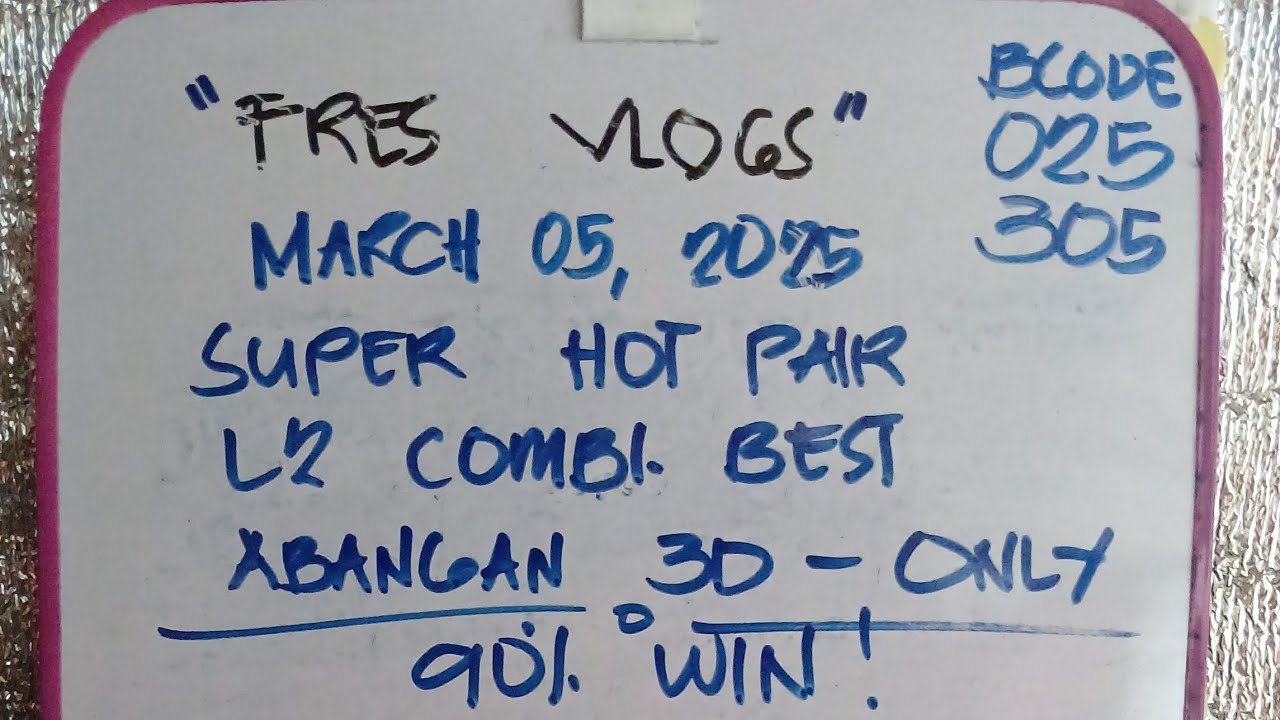 "FRES VLOGS"
BCODE
025
305
MARCH 05, 2025
SUPER HOT PAIR
L2 COMBI. BEST
ABANGAN 3D - ONLY
90% WIN!